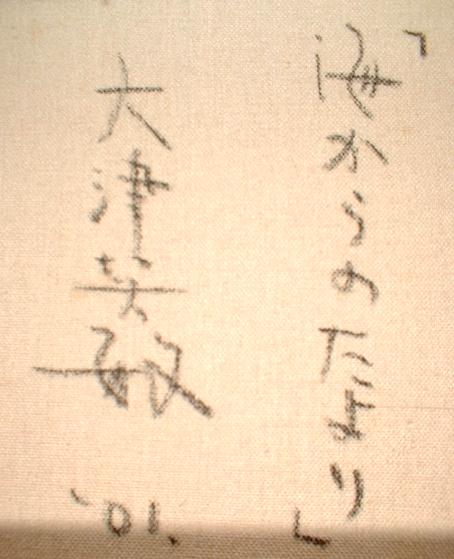 「海からのたより」
大津英敏
'01.